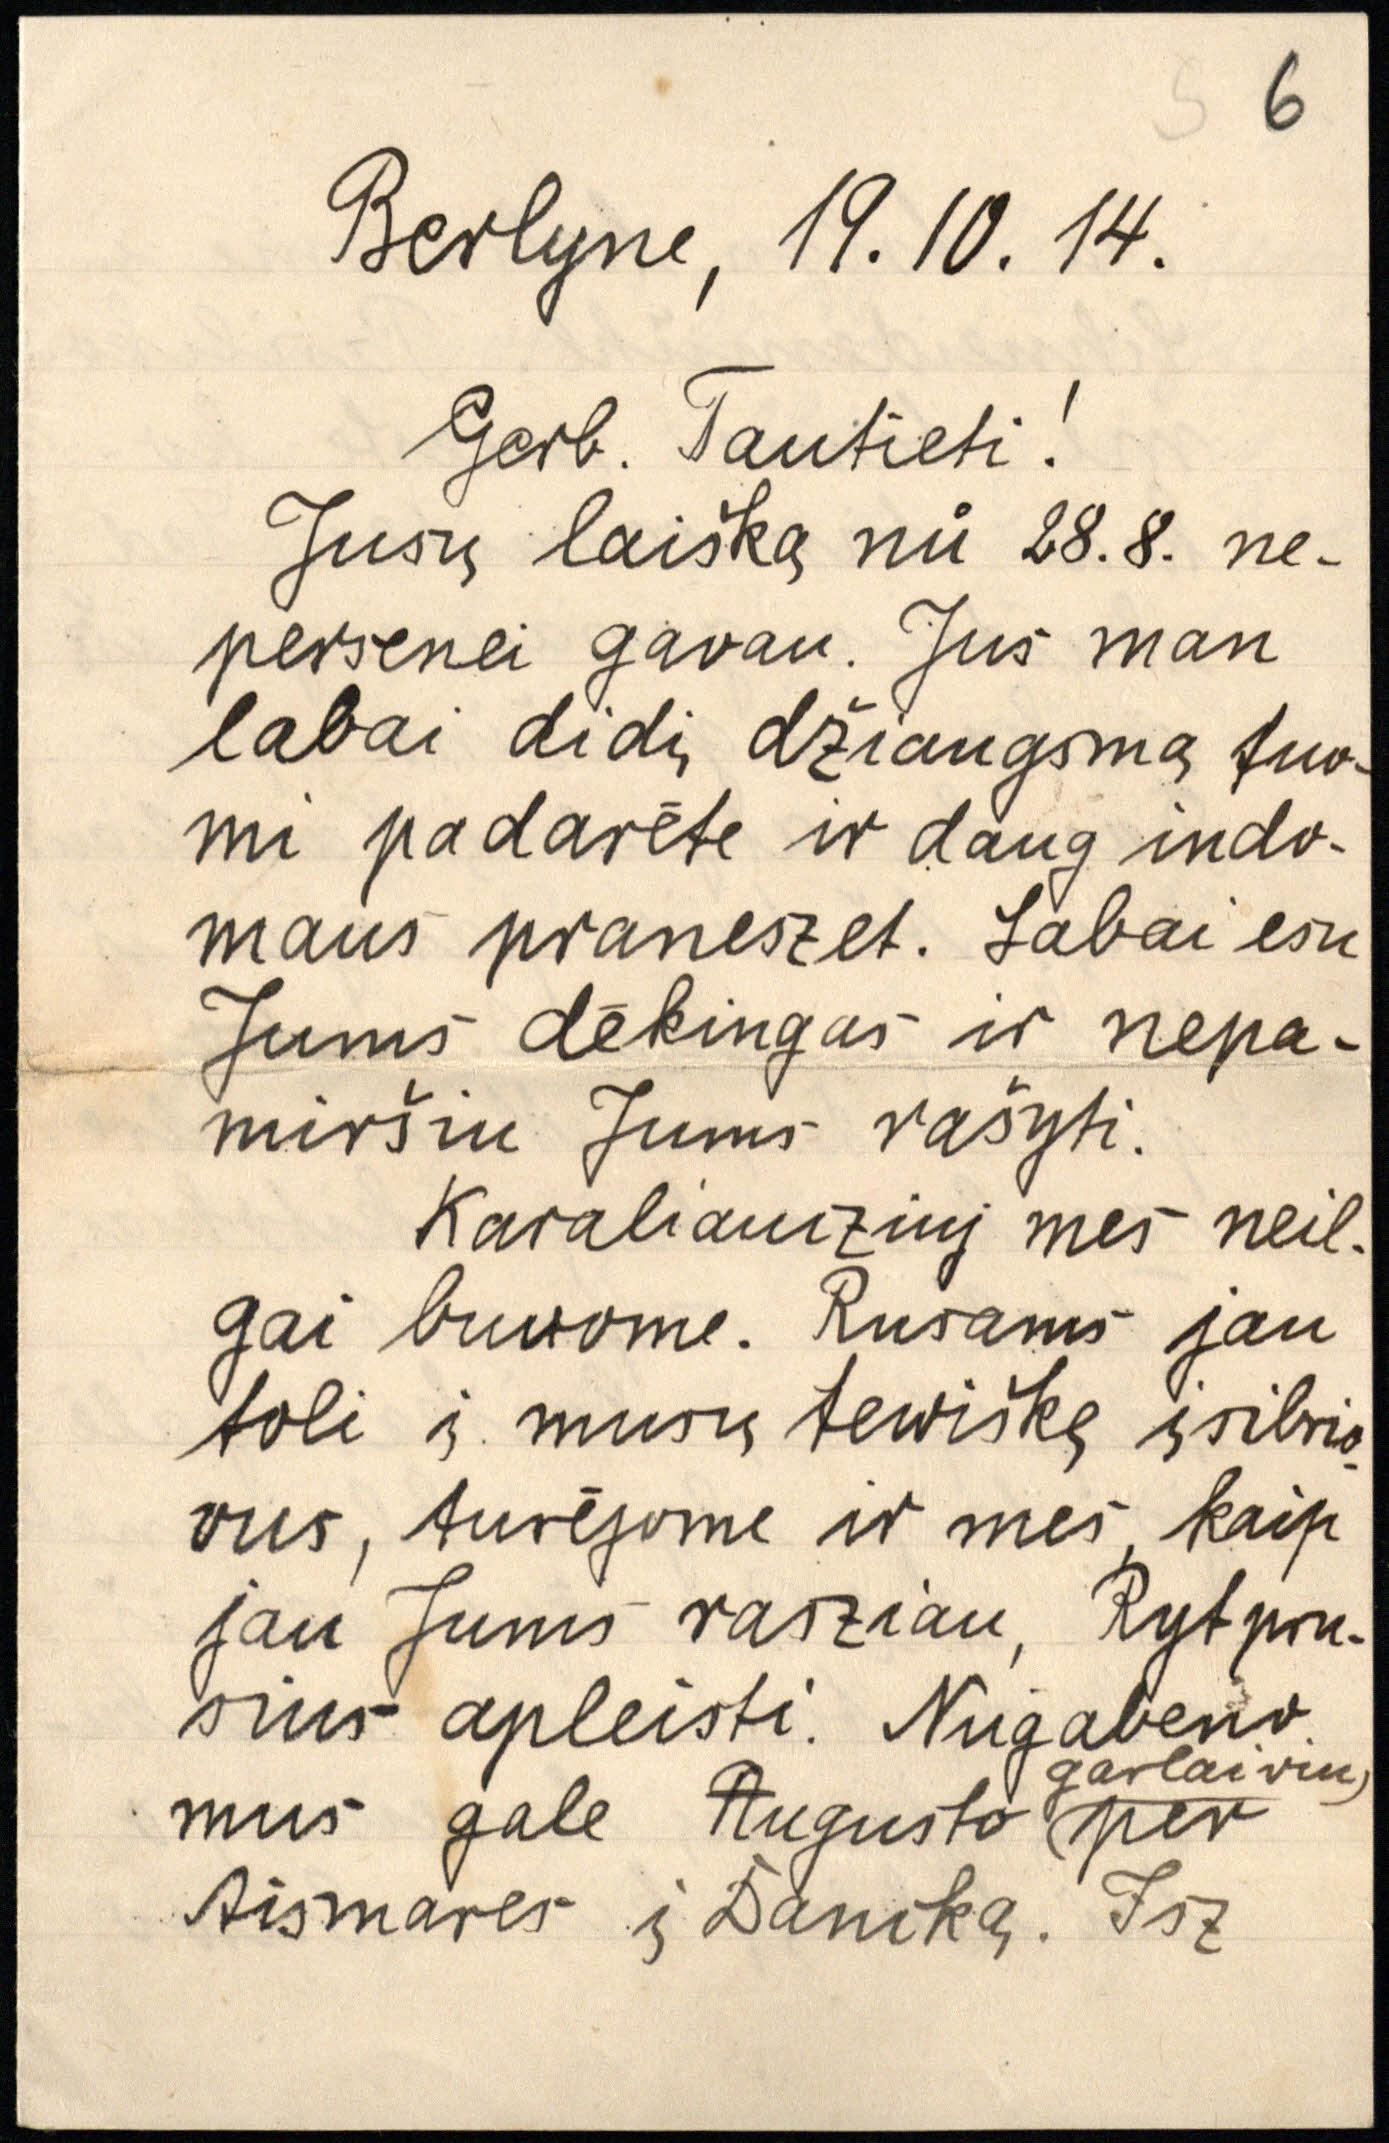 6
Berlyne, 19. 10. 14.
Gerb. Tautieti!
Jusų laišką nů 28. 8. ne-
persenei gavau. Jus man
labai didį džiaugsmą tuo-
mi padarēte ir daug indo-
maus praneszet. Labai esu
Jums dēkingas ir nepa-
miršiu Jums rašyti.
Karaliaucziuj mes neil-
gai buwome. Rusams jau
toli į musų tewiškę įsibrio-
vus, turējome ir mes, kaip
jau Jums rasziau, Rytpru-
sius apleisti. Nugabeno
garlaiviu
mus gale Augusto per
Aismares į Danską. Isz